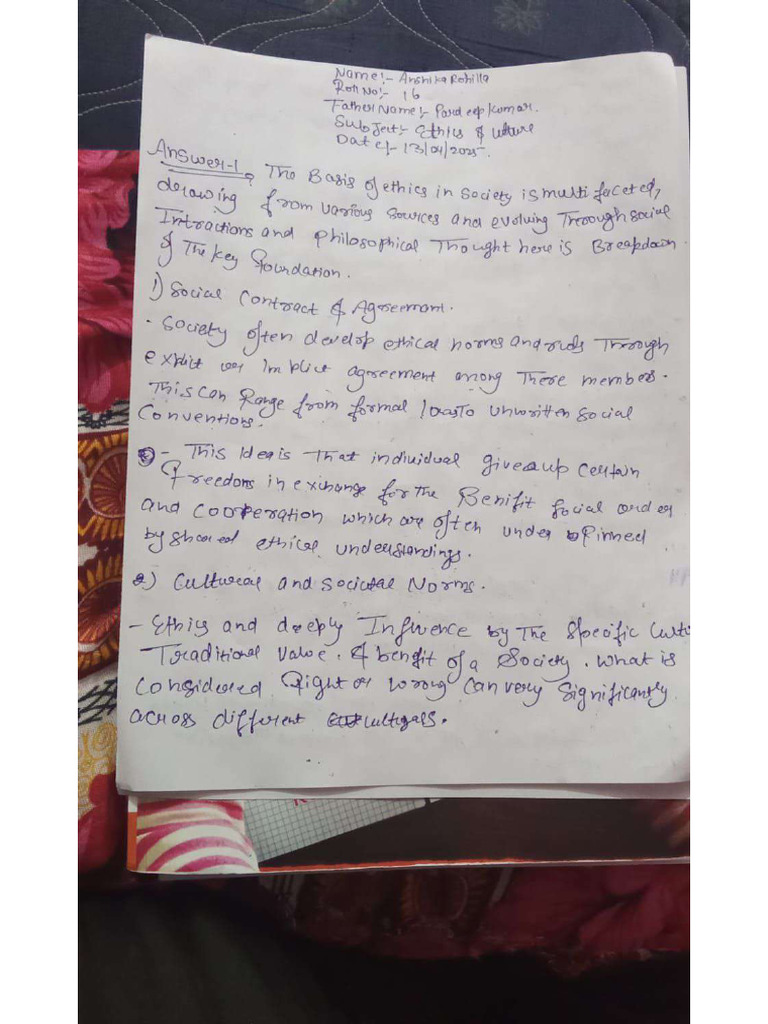 Name:- Anshika Rohilla
Roll No:- 16
Father Name:- Pardeep kumar.
Subject:- Ethics & Culture
Date:- 13/04/2025.
Answer-1, The Basis of ethics in Society is multi faceted,
drawing from various sources and evolving Through social
Intractions and philosophical Thought here is Breakdown
of The key foundation.
1) Social Contract & Agreement.
- Society often develop ethical norms and rules Through
explict or Implict agreement among There members.
This can Range from formal laws to unwritten social
Conventions.
- This Idea is That individual gives up certain
freedoms in exchange for the Benifit social order
and cooperation which are often under pinned
by shared ethical understandings.
2) Cultural and Societal Norms.
- Ethics and deeply Influence by The specific Cultu
Traditional value. & benefit of a Society. What is
considered Right or wrong can very significantly
across different culturals.